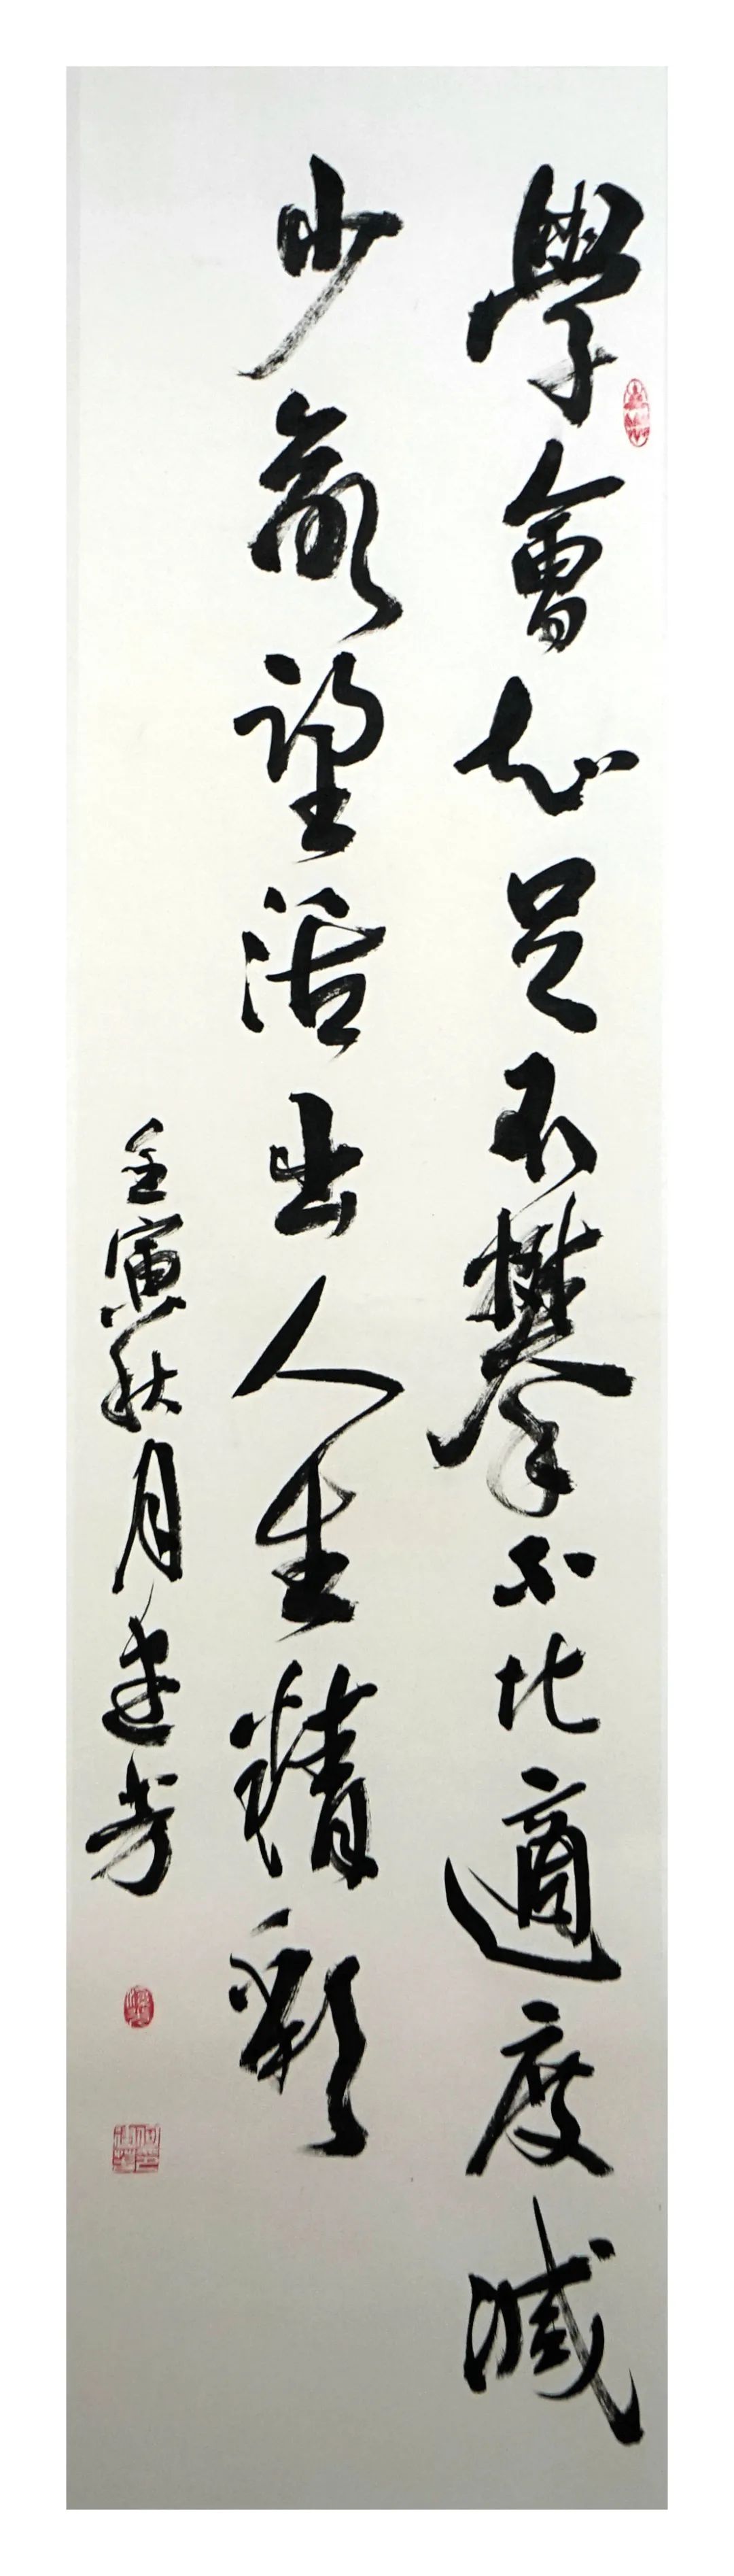 學會知足不攀不比適度減
少欲望活出人生精彩
壬寅秋月建芳